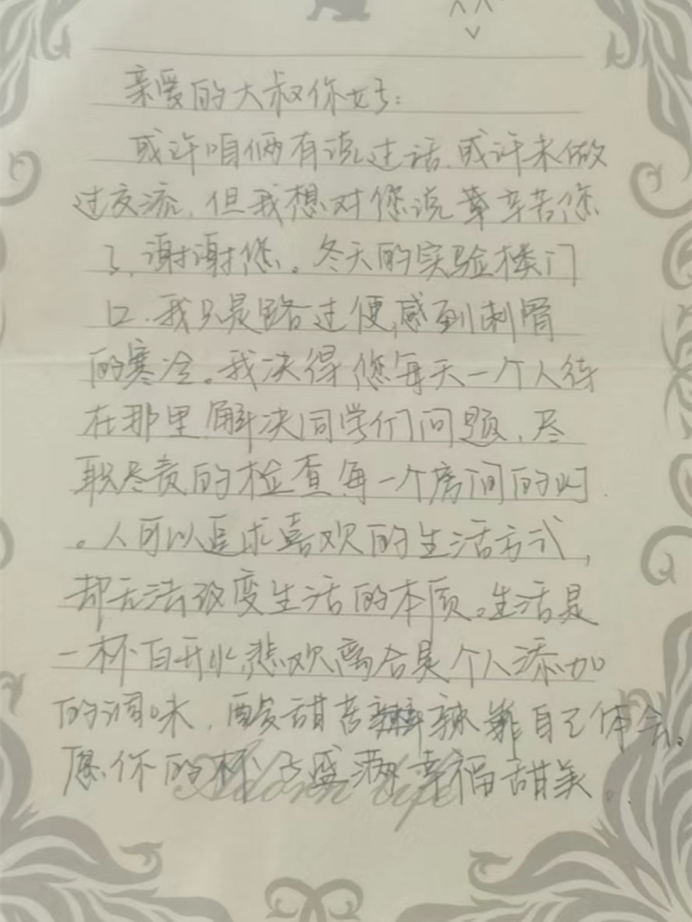 亲爱的大叔你好：
或许咱俩有说过话，或许未做
过交流，但我想对您说声辛苦您
了，谢谢您。冬天的实验楼门
口，我只是路过便感到刺骨
的寒冷。我决得您每天一个人待
在那里解决同学们问题，尽
职尽责的检查每一个房间的灯
。人可以追求喜欢的生活方式，
却无法改变生活的本质。生活是
一杯白开水悲欢离合是个人添加
的调味，酸甜苦辣靠自己体会。
愿你的杯子盛满幸福甜美
Adorn life